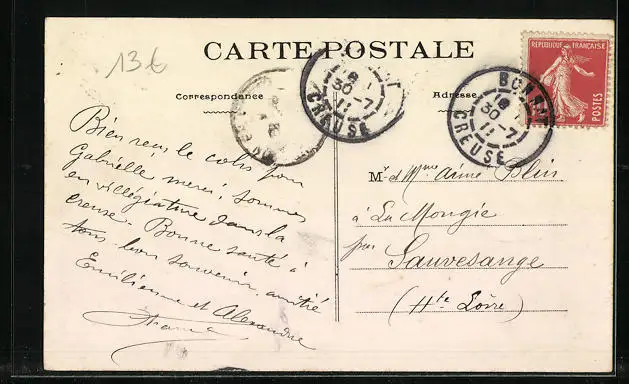 13€
CARTE POSTALE
REPUBLIQUE FRANÇAISE
POSTES
Correspondance
Adresse
CREUSE
30 -7
11
BONNAT
CREUSE
30 -7
11
Bien reçu le colis pour
Gabrielle merci, sommes
en villégiature dans la
Creuse. Bonne santé à
tous. bon souvenir, amitié
Emilienne et Alexandre
M. et Mme Aimé Blin
à La Mongie
par Sauvesange
(Hte Loire)